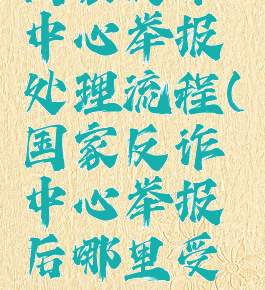 中心举报
处理流程(
国家反诈
中心举报
后哪里受